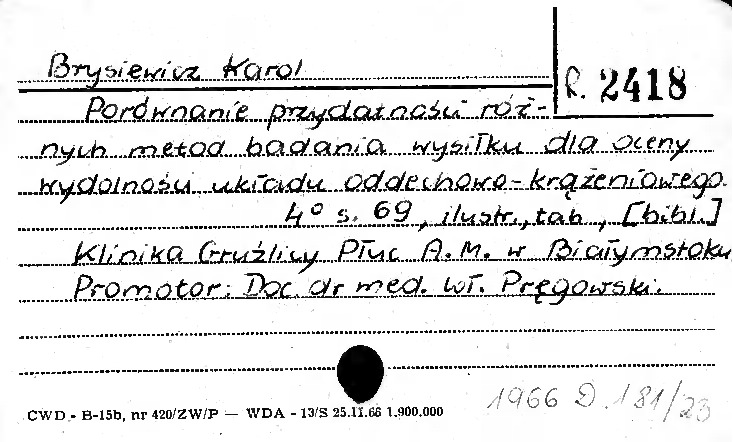 Brysiewicz Karol
R. 2418
Porównanie przydatności róż-
nych metod badania wysiłku dla oceny
wydolności układu oddechowo-krążeniowego.
4° s. 69, ilustr., tab, [bibl.]
Klinika Gruźlicy Płuc A.M. w Białymstoku
Promotor: Doc. dr med. Wł. Pręgowski.
CWD - B-15b, nr 420/ZW/P — WDA - 13/S 25.II.66 1.900.000
1966 D. 181/23